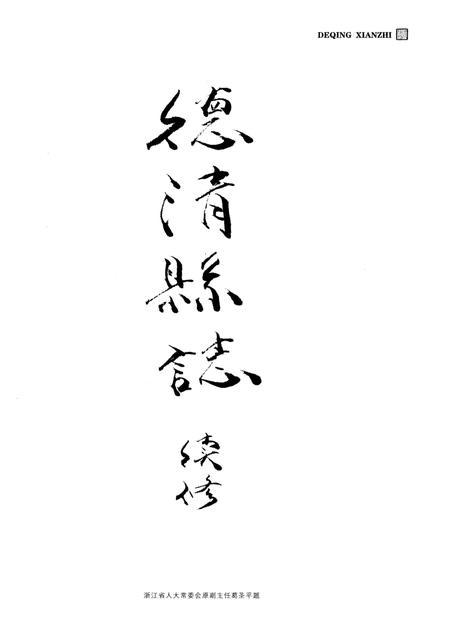 DEQING XIANZHI
德清縣誌
續修
浙江省人大常委会原副主任葛圣平题